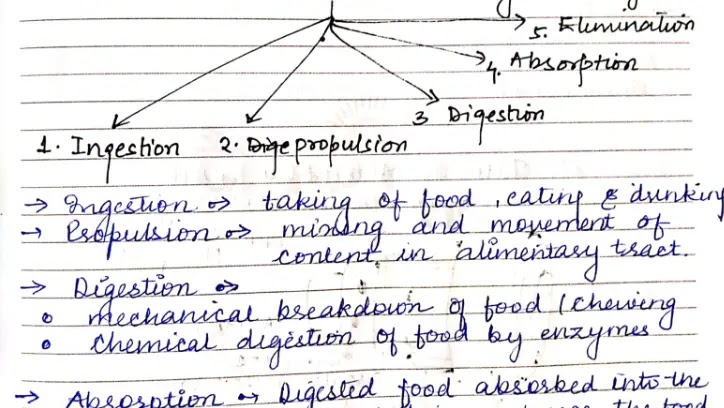 5. Elimination
4. Absorption
3 Digestion
1. Ingestion 2. propulsion
→ Ingestion → taking of food, eating & drinking
→ Propulsion → mixing and movement of
content in alimentary tract.
→ Digestion →
• mechanical breakdown of food (chewing
• Chemical digestion of food by enzymes
→ Absorption → Digested food absorbed into the
the food